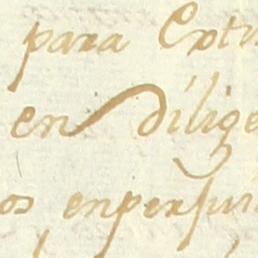 para Extr
en dilige
os enperjui